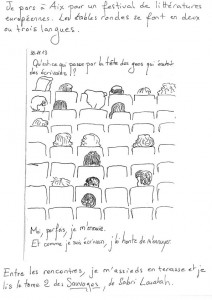 Je pars à Aix pour un festival de littératures
européennes. Les tables rondes se font en deux
ou trois langues.
Qu'est-ce qui passe par la tête des gens qui invitent
des écrivains !?
Moi, parfois, je m'ennuie.
Et comme je suis écrivain, j'ai honte de m'ennuyer.
Entre les rencontres, je m'assieds en terrasse et je
lis le tome 2 des Sauvages, de Sabri Louatah.